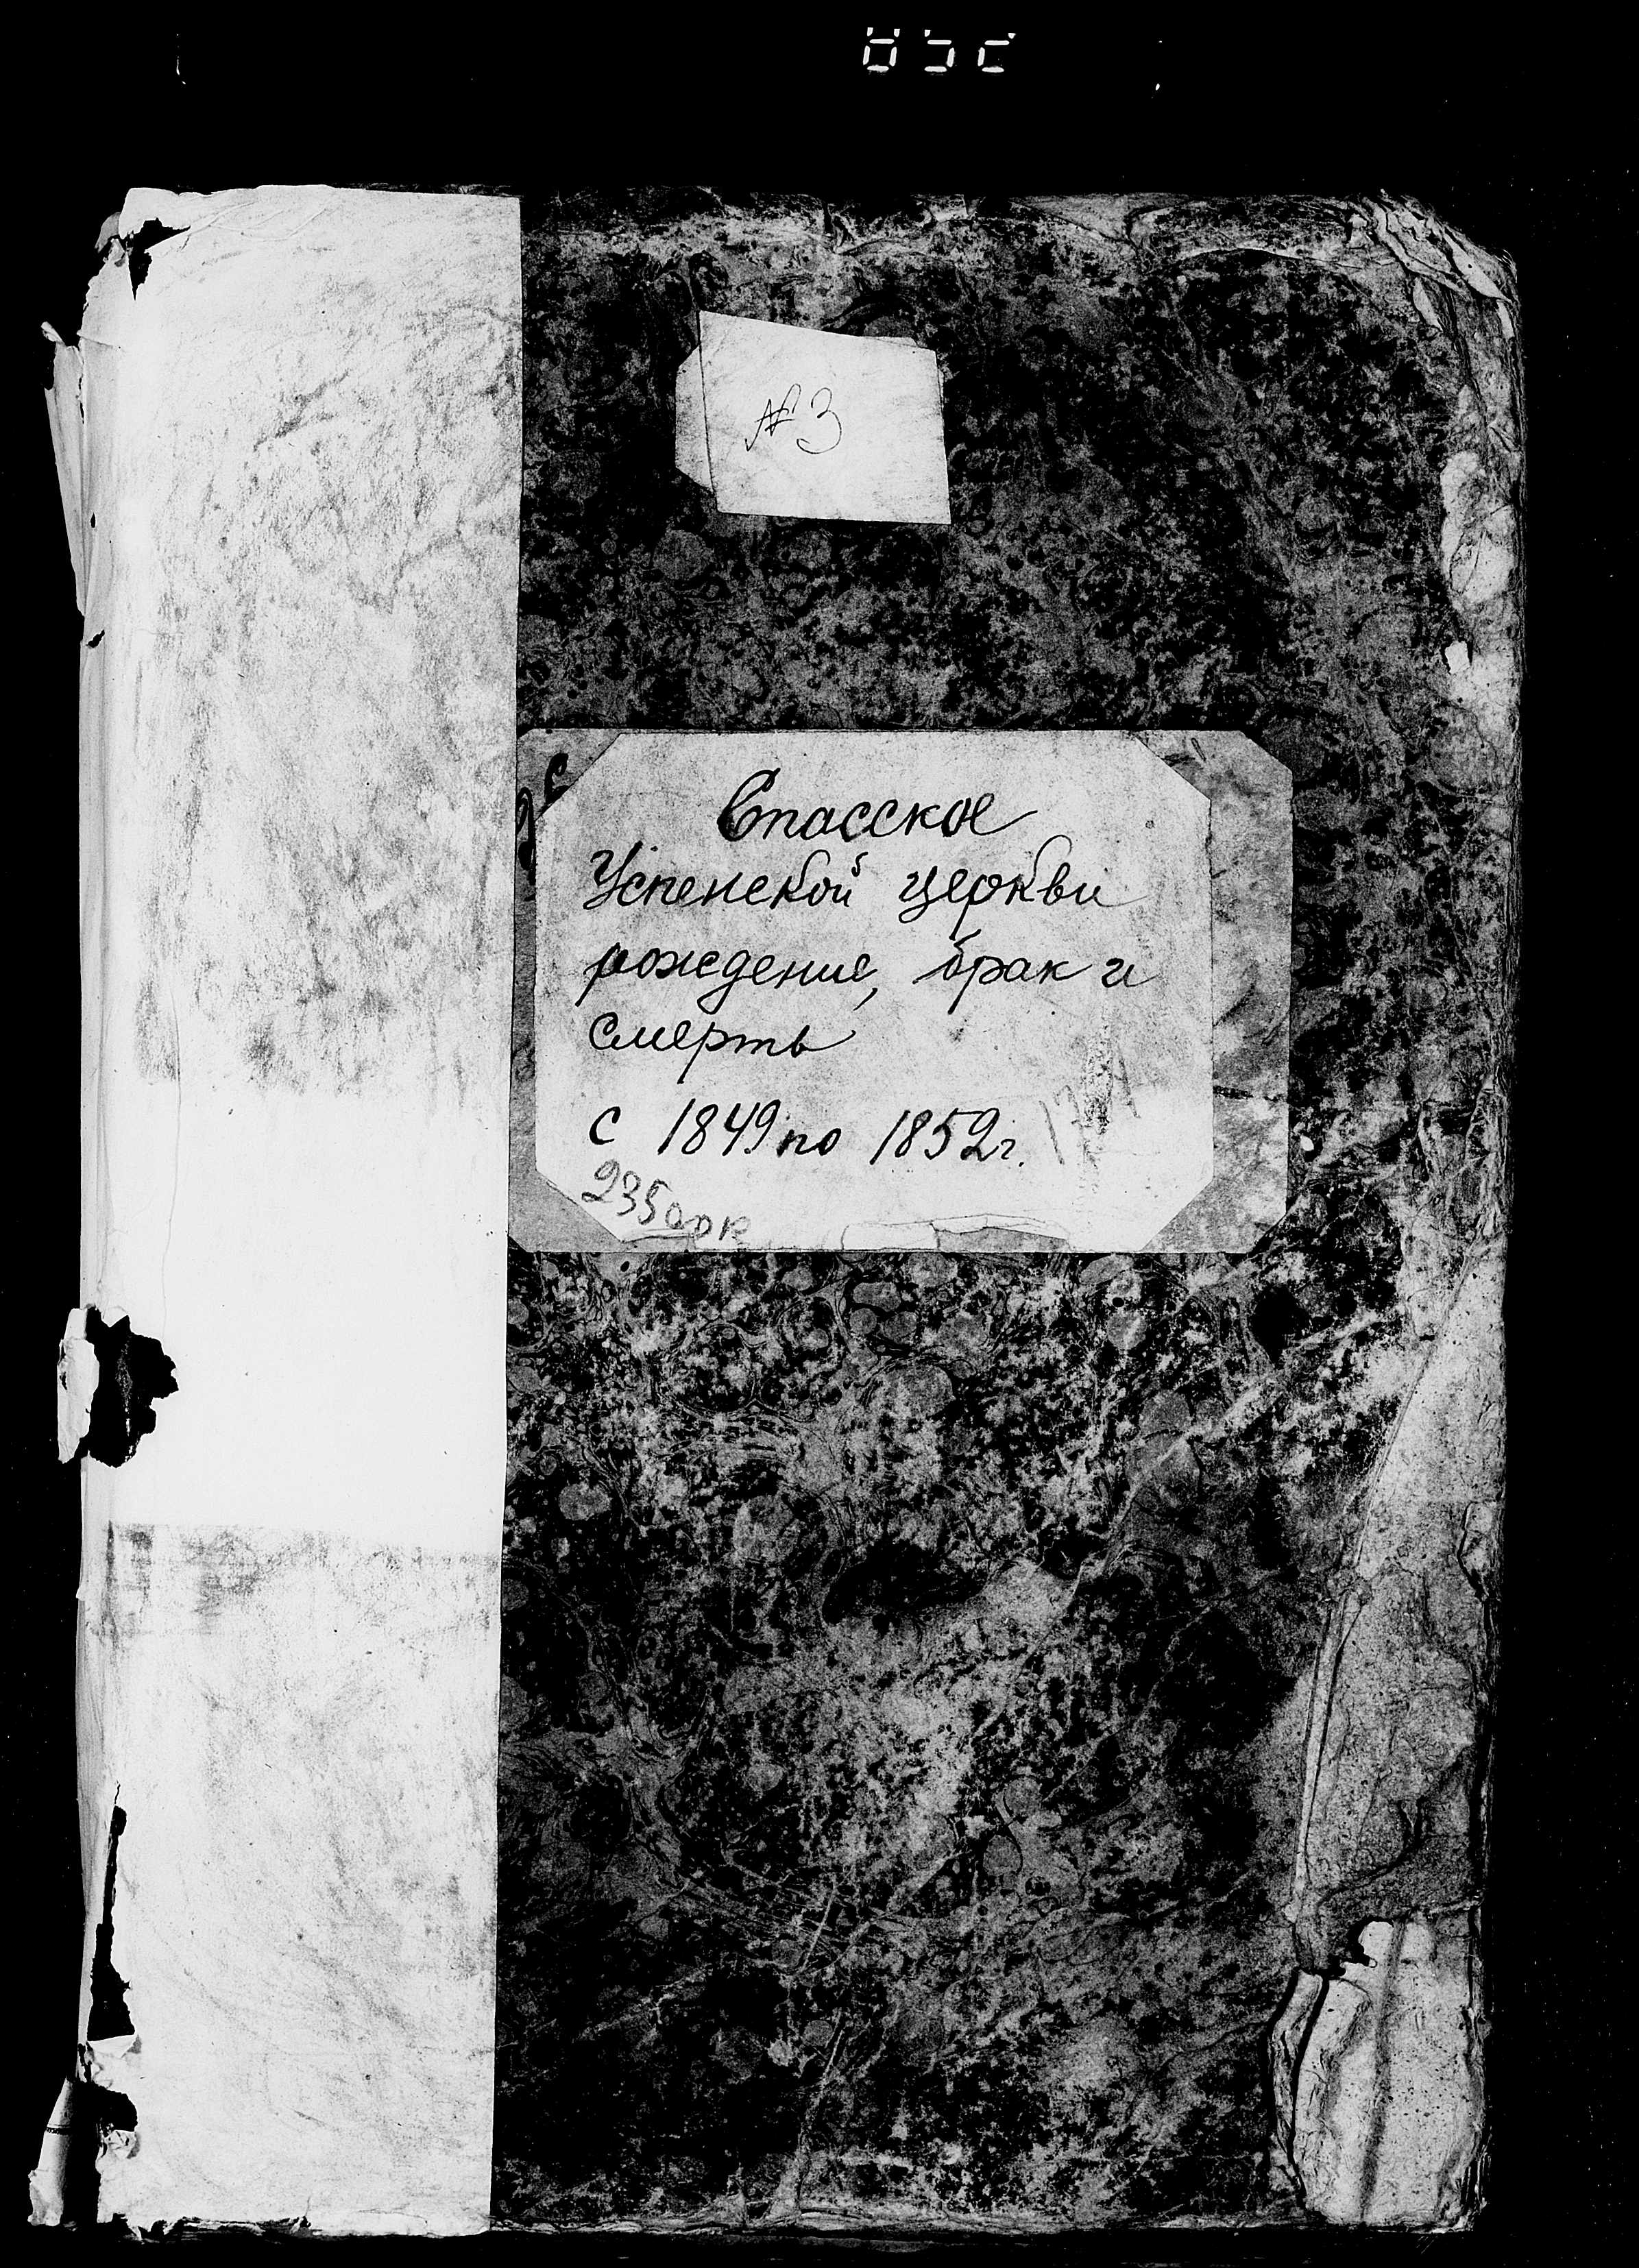 № 3
Спасское
Успенской церкви
рождение, брак и
смерть
с 1849 по 1852 г.
235